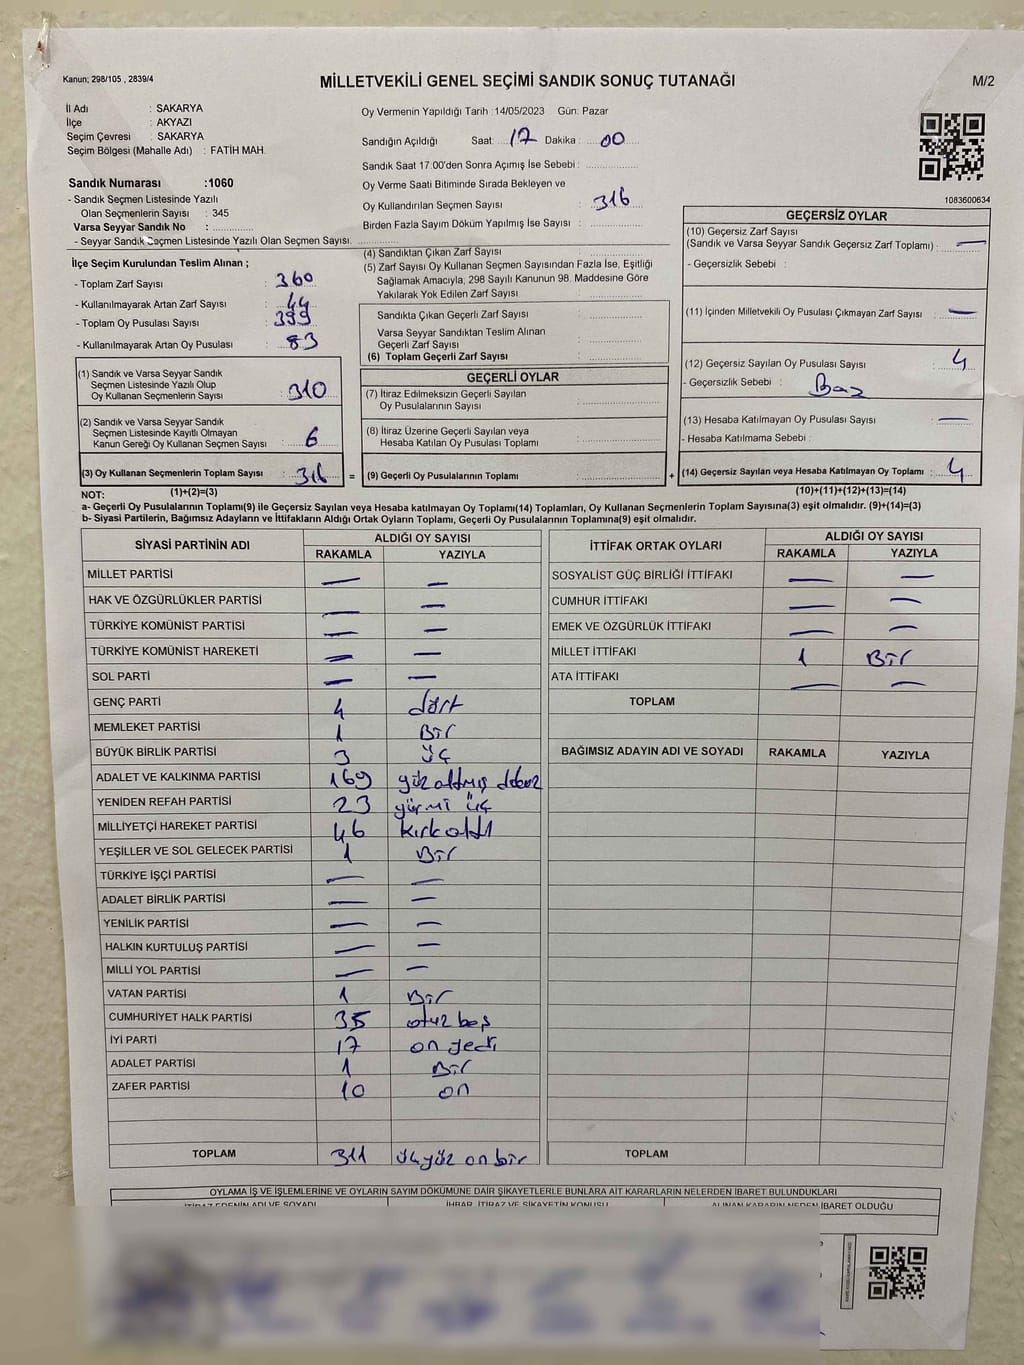 Kanun; 298/105 , 2839/4
MİLLETVEKİLİ GENEL SEÇİMİ SANDIK SONUÇ TUTANAĞI
M/2
İl Adı : SAKARYA
İlçe : AKYAZI
Seçim Çevresi : SAKARYA
Seçim Bölgesi (Mahalle Adı) : FATİH MAH.
Sandık Numarası :1060
- Sandık Seçmen Listesinde Yazılı
Olan Seçmenlerin Sayısı : 345
Varsa Seyyar Sandık No :
- Seyyar Sandık Seçmen Listesinde Yazılı Olan Seçmen Sayısı.
Oy Vermenin Yapıldığı Tarih :14/05/2023 Gün: Pazar
Sandığın Açıldığı Saat: 17 Dakika : 00
Sandık Saat 17:00'den Sonra Açımış İse Sebebi :
Oy Verme Saati Bitiminde Sırada Bekleyen ve
Oy Kullandırılan Seçmen Sayısı : 316
Birden Fazla Sayım Döküm Yapılmış İse Sayısı :
1083600634
İlçe Seçim Kurulundan Teslim Alınan ;
- Toplam Zarf Sayısı : 360
- Kullanılmayarak Artan Zarf Sayısı : 44
- Toplam Oy Pusulası Sayısı : 399
- Kullanılmayarak Artan Oy Pusulası : 83
(1) Sandık ve Varsa Seyyar Sandık
Seçmen Listesinde Yazılı Olup
Oy Kullanan Seçmenlerin Sayısı : 310
(2) Sandık ve Varsa Seyyar Sandık
Seçmen Listesinde Kayıtlı Olmayan
Kanun Gereği Oy Kullanan Seçmen Sayısı : 6
(3) Oy Kullanan Seçmenlerin Toplam Sayısı : 316 =
(1)+(2)=(3)
(4) Sandıktan Çıkan Zarf Sayısı :
(5) Zarf Sayısı Oy Kullanan Seçmen Sayısından Fazla İse, Eşitliği
Sağlamak Amacıyla, 298 Sayılı Kanunun 98. Maddesine Göre
Yakılarak Yok Edilen Zarf Sayısı :
Sandıkta Çıkan Geçerli Zarf Sayısı :
Varsa Seyyar Sandıktan Teslim Alınan
Geçerli Zarf Sayısı :
(6) Toplam Geçerli Zarf Sayısı :
GEÇERLİ OYLAR
(7) İtiraz Edilmeksizin Geçerli Sayılan
Oy Pusulalarının Sayısı :
(8) İtiraz Üzerine Geçerli Sayılan veya
Hesaba Katılan Oy Pusulası Toplamı :
(9) Geçerli Oy Pusulalarının Toplamı : +
GEÇERSİZ OYLAR
(10) Geçersiz Zarf Sayısı
(Sandık ve Varsa Seyyar Sandık Geçersiz Zarf Toplamı) : —
- Geçersizlik Sebebi :
(11) İçinden Milletvekili Oy Pusulası Çıkmayan Zarf Sayısı : —
(12) Geçersiz Sayılan Oy Pusulası Sayısı : 4
- Geçersizlik Sebebi :
(13) Hesaba Katılmayan Oy Pusulası Sayısı : —
- Hesaba Katılmama Sebebi :
(14) Geçersiz Sayılan veya Hesaba Katılmayan Oy Toplamı : 4
(10)+(11)+(12)+(13)=(14)
NOT:
a- Geçerli Oy Pusulalarının Toplamı(9) ile Geçersiz Sayılan veya Hesaba katılmayan Oy Toplamı(14) Toplamları, Oy Kullanan Seçmenlerin Toplam Sayısına(3) eşit olmalıdır. (9)+(14)=(3)
b- Siyasi Partilerin, Bağımsız Adayların ve İttifakların Aldığı Ortak Oyların Toplamı, Geçerli Oy Pusulalarının Toplamına(9) eşit olmalıdır.
SİYASİ PARTİNİN ADI ALDIĞI OY SAYISI
RAKAMLA YAZIYLA
MİLLET PARTİSİ — —
HAK VE ÖZGÜRLÜKLER PARTİSİ — —
TÜRKİYE KOMÜNİST PARTİSİ — —
TÜRKİYE KOMÜNİST HAREKETİ — —
SOL PARTİ — —
GENÇ PARTİ 4 dört
MEMLEKET PARTİSİ 1 Bir
BÜYÜK BİRLİK PARTİSİ 3 üç
ADALET VE KALKINMA PARTİSİ 169 yüz altmış dokuz
YENİDEN REFAH PARTİSİ 23 yirmi üç
MİLLİYETÇİ HAREKET PARTİSİ 46 kırk altı
YEŞİLLER VE SOL GELECEK PARTİSİ 1 Bir
TÜRKİYE İŞÇİ PARTİSİ — —
ADALET BİRLİK PARTİSİ — —
YENİLİK PARTİSİ — —
HALKIN KURTULUŞ PARTİSİ — —
MİLLİ YOL PARTİSİ — —
VATAN PARTİSİ 1 Bir
CUMHURİYET HALK PARTİSİ 35 otuz beş
İYİ PARTİ 17 on yedi
ADALET PARTİSİ 1 Bir
ZAFER PARTİSİ 10 on
TOPLAM 311 üçyüz on bir
İTTİFAK ORTAK OYLARI ALDIĞI OY SAYISI
RAKAMLA YAZIYLA
SOSYALİST GÜÇ BİRLİĞİ İTTİFAKI — —
CUMHUR İTTİFAKI — —
EMEK VE ÖZGÜRLÜK İTTİFAKI — —
MİLLET İTTİFAKI 1 Bir
ATA İTTİFAKI — —
TOPLAM
BAĞIMSIZ ADAYIN ADI VE SOYADI RAKAMLA YAZIYLA
TOPLAM
OYLAMA İŞ VE İŞLEMLERİNE VE OYLARIN SAYIM DÖKÜMÜNE DAİR ŞİKAYETLERLE BUNLARA AİT KARARLARIN NELERDEN İBARET BULUNDUKLARI
İTİRAZ EDENİN ADI VE SOYADI İHBAR, İTİRAZ VE ŞİKAYETİN KONUSU ALINAN KARARIN NEDEN İBARET OLDUĞU